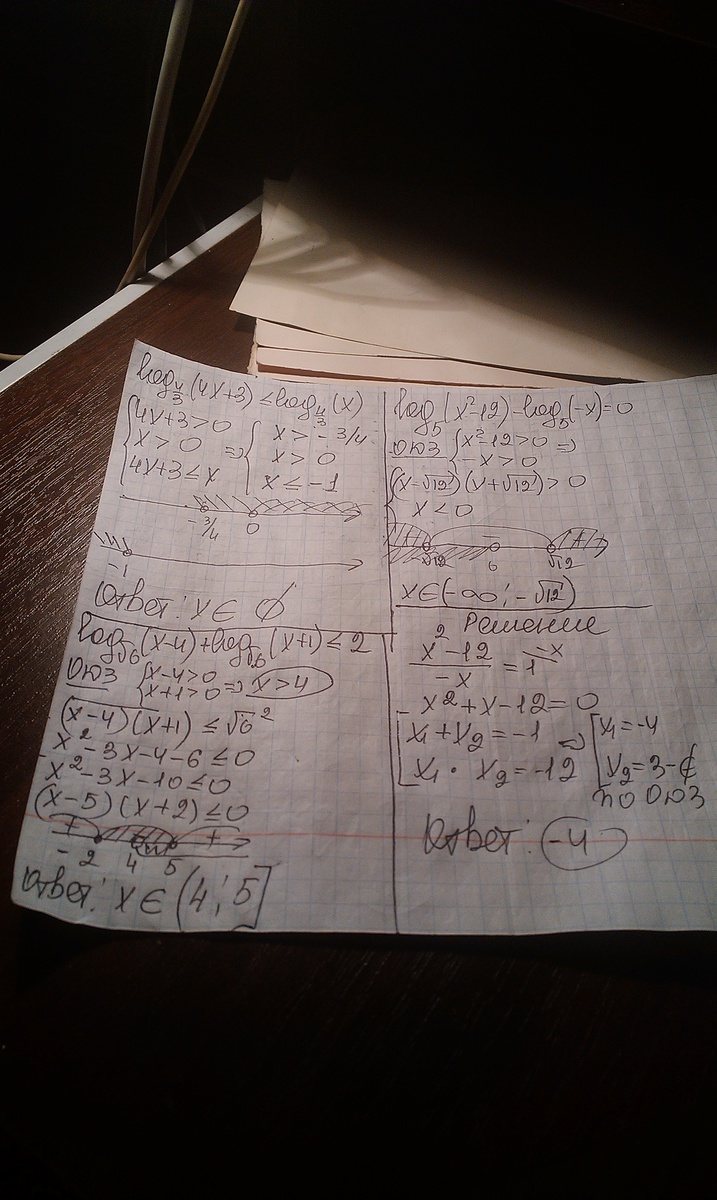 log₄/₃(4x+3) ≤ log₄/₃(x)
{4x+3>0
x>0
4x+3≤x
⇒ {x>-3/4
x>0
x≤-1
-3/4 0
-1
Ответ: x∈ ∅
log√6(x-4)+log√6(x+1)≤2
ОДЗ {x-4>0
x+1>0 ⇒ x>4
(x-4)(x+1)≤√6²
x²-3x-4-6≤0
x²-3x-10≤0
(x-5)(x+2)≤0
+ +
-2 4 5
Ответ: x∈(4;5]
log₅(x²-12)-log₅(-x)=0
ОДЗ {x²-12>0 ⇒
-x>0
{(x-√12)(x+√12)>0
x<0
+ - +
-√12 0 √12
x∈(-∞;-√12)
Решение
x²-12/-x = 1 -x
x²+x-12=0
[x₁+x₂=-1
x₁·x₂=-12
⇒ [x₁=-4
x₂=3-∉
по ОДЗ
Ответ: -4